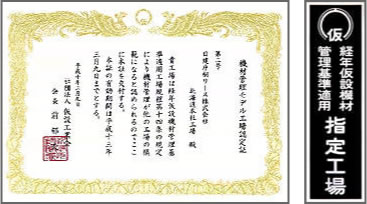 機材管理モデル工場認定証
第二号
日建片桐リース株式会社
北海道本社工場 殿
貴工場は経年仮設機材管理基
準適用工場規程第十四条の規定
により機材管理が他の工場の模
範になると認められるのでここ
に本証を交付する。
本証の有効期間は平成十三年
三月九日までとする。
平成十年三月九日
社団法人 仮設工業会
会長
仮
経年仮設機材
管理基準適用
指定工場